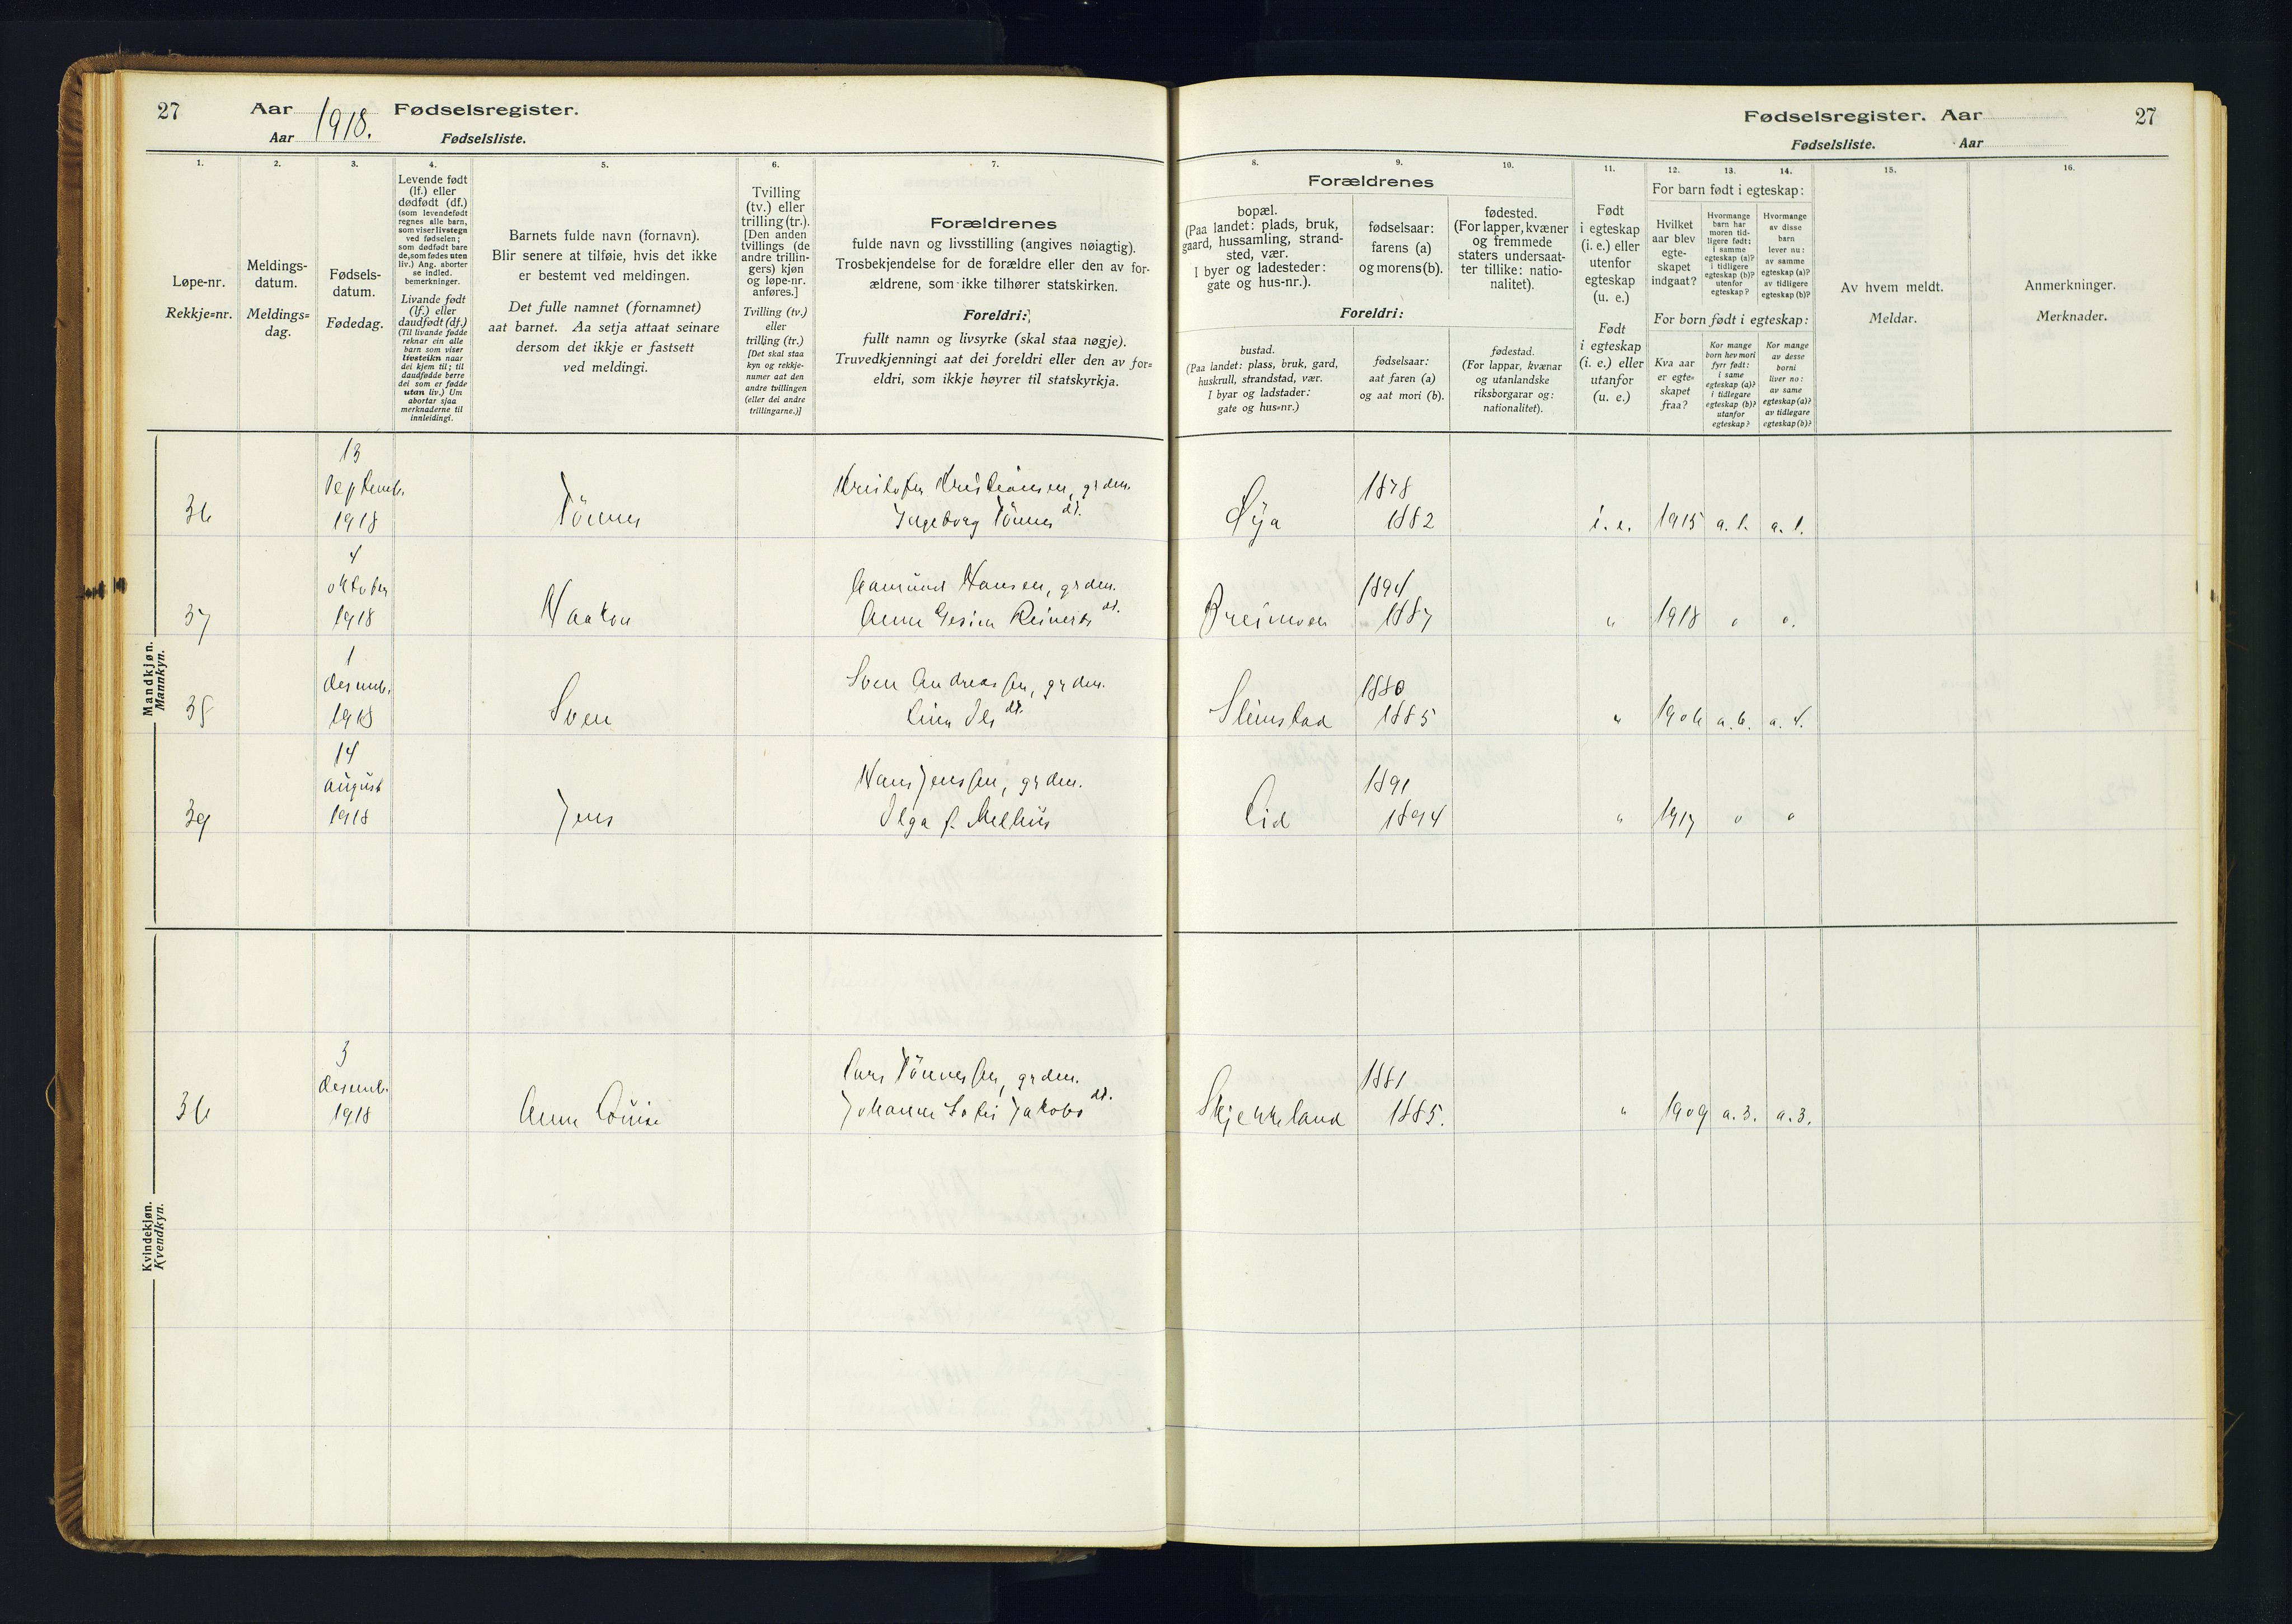 27
Aar 1918. Fødselsregister.
Aar Fødselsliste.
1.
2.
3.
4.
5.
6.
7.
Løpe-nr.
Rekkje=nr.
Meldings-
datum.
Meldings=
dag.
Fødsels-
datum.
Fødedag.
Levende født
(lf.) eller
dødfødt (df.)
(som levendefødt
regnes alle barn,
som viser livstegn
ved fødselen;
som dødfødt bare
de, som fødes uten
liv.) Ang. aborter
se indled.
bemerkninger.
Livande født
(lf.) eller
daudfødt (df.)
(Til livande fødde
reknar ein alle
barn som viser
livsteikn naar
dei kjem til; til
daudfødde berre
dei som er fødde
utan liv.) Um
abortar sjaa
merknaderne til
innleidingi.
Barnets fulde navn (fornavn).
Blir senere at tilføie, hvis det ikke
er bestemt ved meldingen.
Det fulle namnet (fornamnet)
aat barnet. Aa setja attaat seinare
dersom det ikkje er fastsett
ved meldingi.
Tvilling
(tv.) eller
trilling (tr.).
[Den anden
tvillings (de
andre trillin-
gers) kjøn
og løpe-nr.
anføres.]
Tvilling (tv.)
eller
trilling (tr.)
[Det skal staa
kyn og rekkje-
numer aat den
andre tvillingen
(eller dei andre
trillingarne.)]
Forældrenes
fulde navn og livsstilling (angives nøiagtig).
Trosbekjendelse for de forældre eller den av for-
ældrene, som ikke tilhører statskirken.
Foreldri:
fullt namn og livsyrke (skal staa nøgje).
Truvedkjenningi aat dei foreldri eller den av for=
eldri, som ikkje høyrer til statskyrkja.
Mandkjøn.
Mannkyn.
36
13
Septemb.
1918
Tönnes
Kristofer Kristiansen, grdm.
Ingeborg Tönnes dt.
37
4
oktober
1918
Haakon
Aamund Hansen, grdm.
Anna Gesine Reiners dt.
38
1
desemb.
1918
Sven
Sven Andreassen, grdm.
dt.
39
14
august
1918
Jens
Hans Jenssen, grdm.
Olga f. Melhus
Kvindekjøn.
Kvendkyn.
36
3
desemb.
1918
Anna Louise
Lars Tönnessen, grdm.
Johanne Sofie Jakobs dt.
Fødselsregister. Aar
27
Fødselsliste. Aar
8.
9.
10.
11.
12.
13.
14.
15.
16.
Forældrenes
bopæl.
(Paa landet: plads, bruk,
gaard, hussamling, strand-
sted, vær.
I byer og ladesteder:
gate og hus-nr.).
fødselsaar:
farens (a)
og morens (b).
fødested.
(For lapper, kvæner
og fremmede
staters undersaat-
ter tillike: natio-
nalitet).
Foreldri:
bustad.
(Paa landet: plass, bruk, gard,
huskrull, strandstad, vær.
I byar og ladstader:
gate og hus=nr.)
fødselsaar:
aat faren (a)
og aat mori (b).
fødestad.
(For lappar, kvænar
og utanlandske
riksborgarar og:
nationalitet).
Født
i egteskap
(i. e.) eller
utenfor
egteskap
(u. e.)
Født
i egteskap
(i. e.) eller
utanfor
(u. e.)
For barn født i egteskap:
Hvilket
aar blev
egte-
skapet
indgaat?
Hvormange
barn har
moren tid-
ligere født:
i samme
egteskap (a)?
i tidligere
egteskap (b)?
utenfor
egteskap?
Hvormange
av disse
barn
lever nu:
av samme
egteskap (a)?
av tidligere
egteskap (b)?
For born født i egteskap:
Kva aar
er egte=
skapet
fraa?
Kor mange
born hev mori
fyrr født:
i same
egteskap (a)?
i tidlegare
egteskap (b)?
utanfor
egteskap?
Kor mange
av desse
borni
liver no:
av same
egteskap (a)?
av tidlegare
egteskap (b)?
Av hvem meldt.
Meldar.
Anmerkninger.
Merknader.
Øya
1878
1882
i. e.
1915
a. 1.
a. 1.
Breimoen
1894
1887
"
1918
0
0.
Slimstad
1880
1885
"
1906
a. 6.
a. 4.
Eid
1891
1894
"
1917
0
0
Skjekkeland
1881
1885.
"
1909
a. 3.
a. 3.